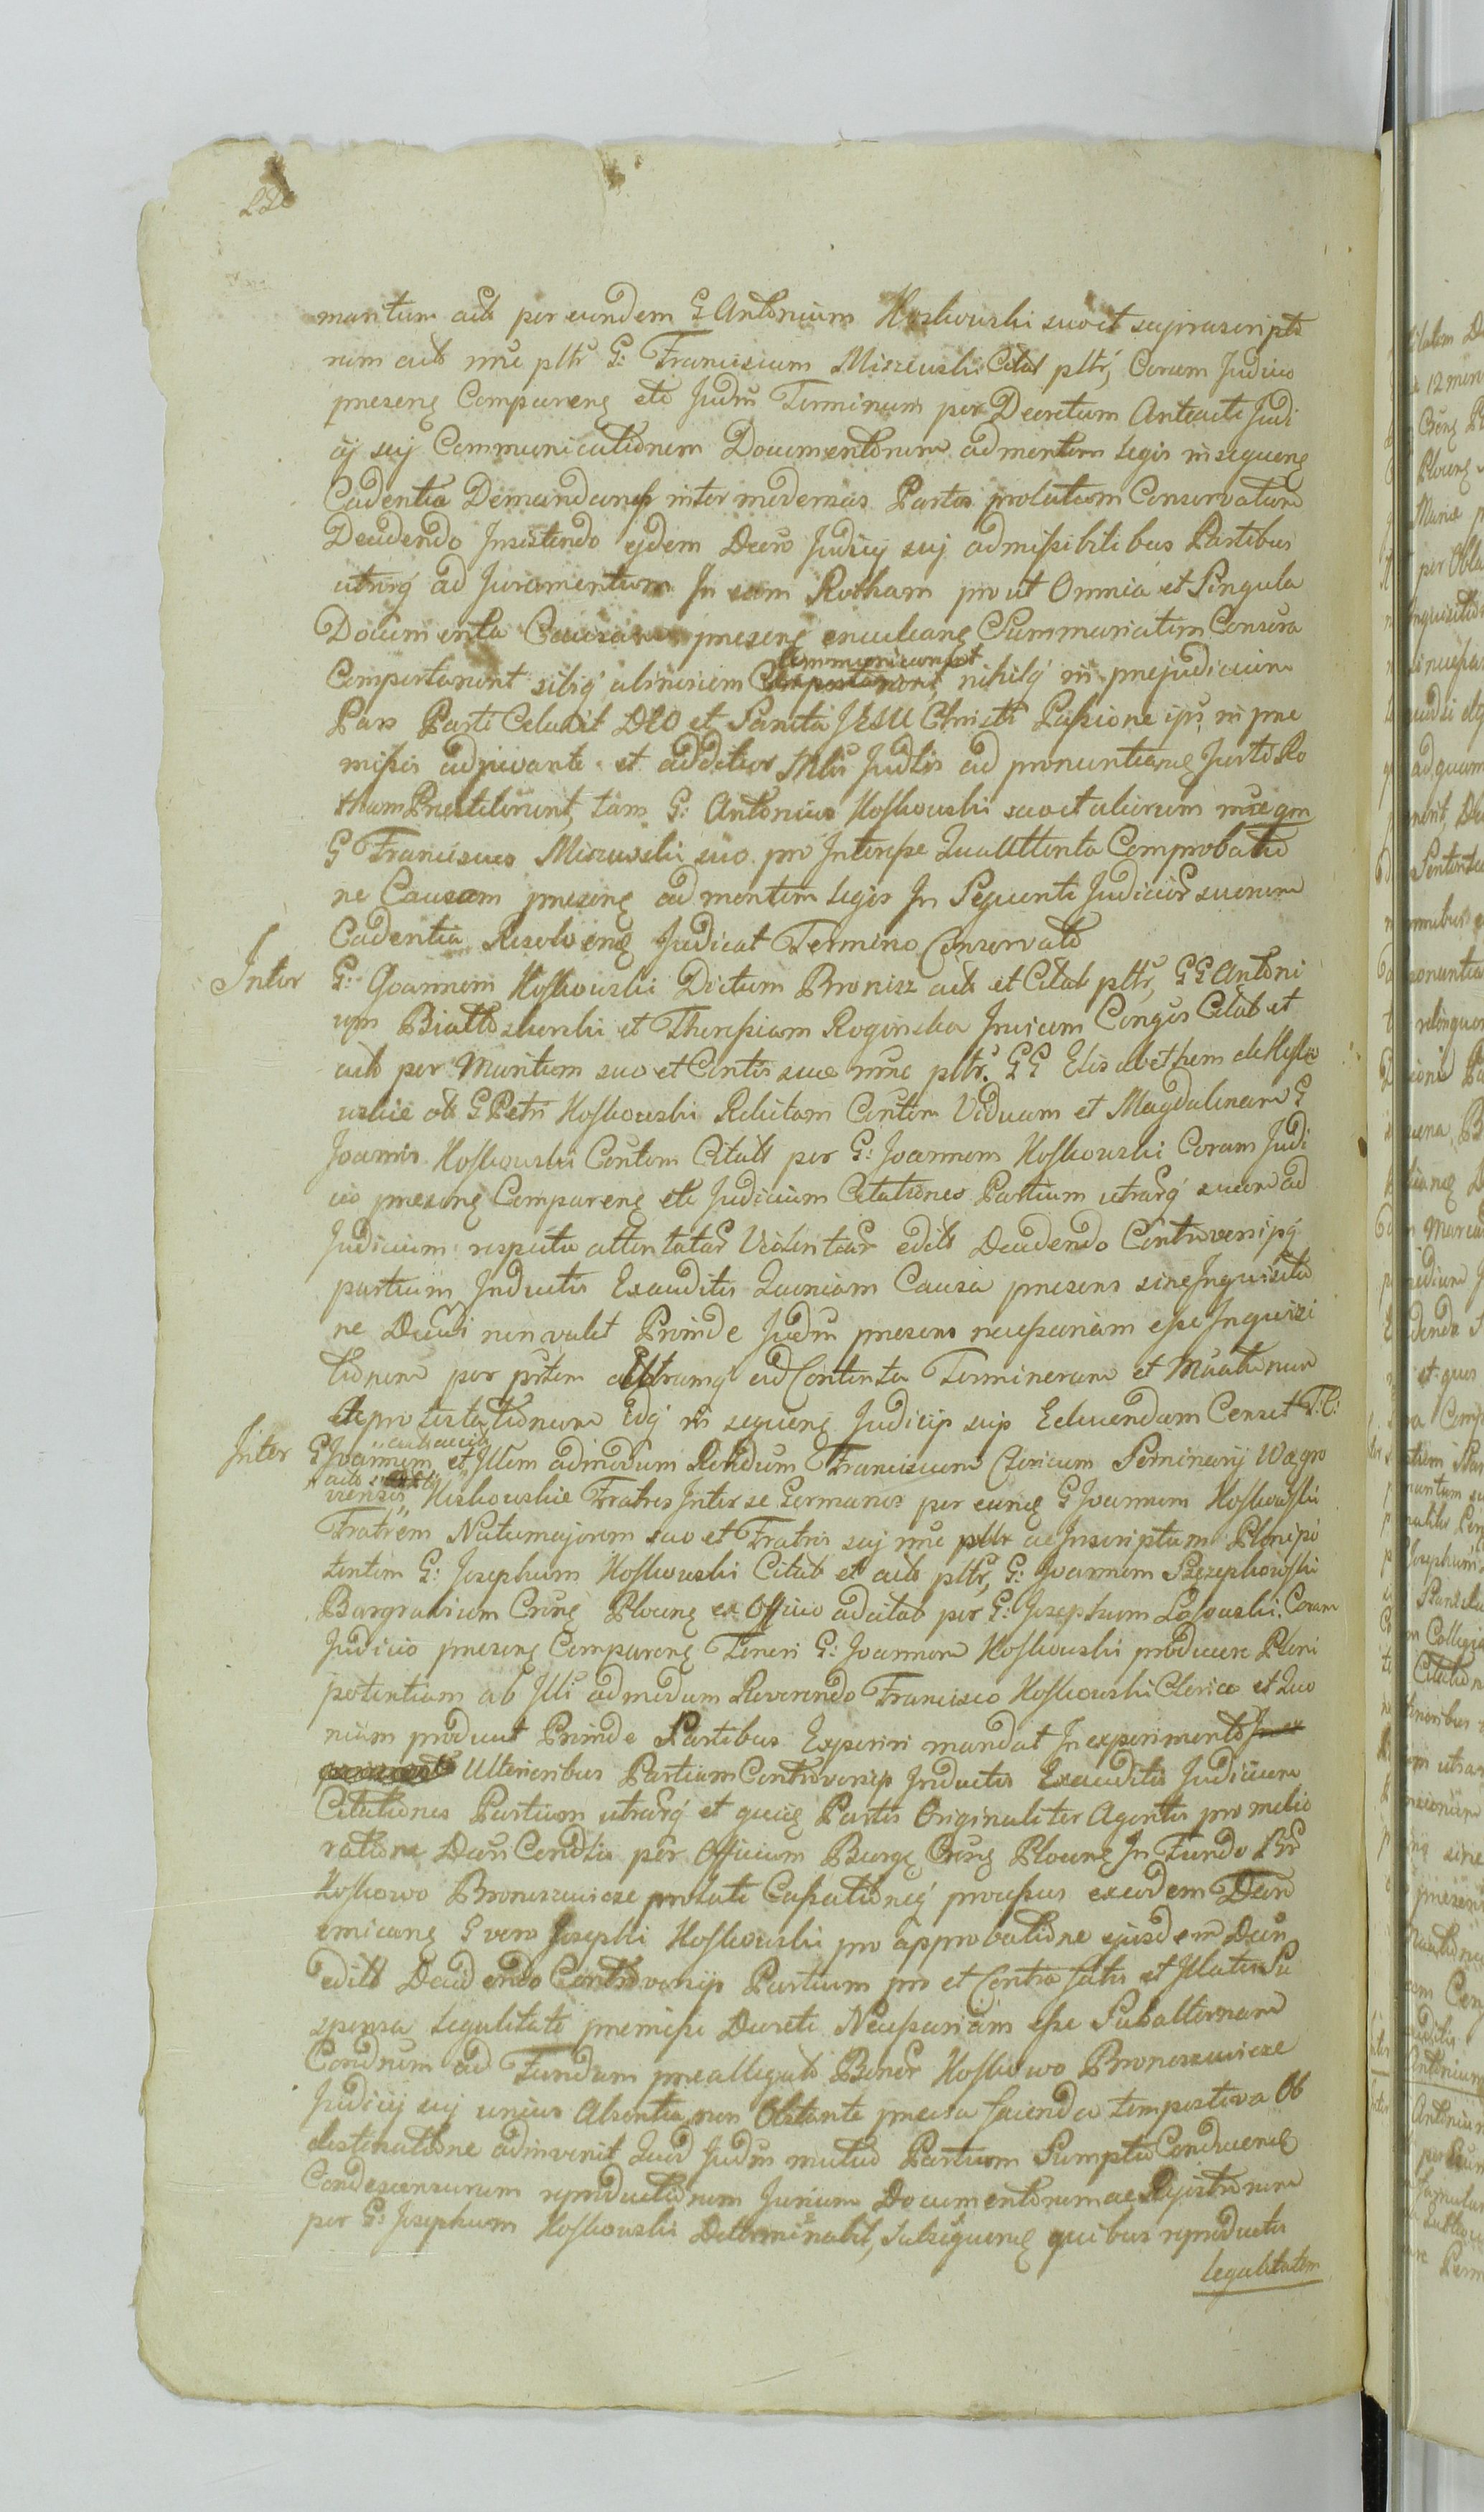 mantum actt per eundem G Antonium Koskowski suo et suprascripto
rum actt nne pltr G: Franciscum Miszewski Citat pltr, Coram Judicio
praeseng Compareng etc Judm Terminum per Decretum Anteacti Judi
cij suj Communicationem Documentorum ad mentem legis in sequeng
Cadentia inter modernas Partes prolatum Conservatum
Decidendo Insistendo ejdem Decro Judicij suj admissibilibus Partibus
utrinq ad Juramentum In eam Rotham prout Omnia et Singula
Documenta Causam praeseng Summariatim Consera
Comportarunt sibiq abinvicem Communicarunt nihilq in praejudicium
Pars Parti Celavit DEO et Sancta JESU Christi Passione ips in prae
missis adjuvante et additus Judlis ad pronuntiang Juxta Ro
tham Praestiterunt, tam G: Antonius Koskowski suo et aliorum nne qm
G Franciscus Miszewski suo pro Interesse Comprobatio
ne Causam praeseng ad mentem legis In Sequenti Judicior suorum
Cadentia Resolveng Judicat Termino Conservato
Inter G: Joannem Koskowski Dictum Bronisz actt et Citat pltr, GG Antoni
um Białłoskorski et Theresiam Roginska Invicem Conges Citat et
actt per Maritum suo et Contis suae nne pltr. GG Elisabetham de Kosko
wskie ol G Petri Koskowski Relictam Contem Viduam et Magdalenam G
Joannis Koskowski Contem Citatt per G: Joannem Koskowski Coram Judi
cio praeseng Compareng etc Judicium Citationes Partium utrarq suam ad
Judicium respectu attentatar Violentiar editt Decidendo Controversijsq
partium Inductis Exauditis Quoniam Causa praesens sine Inquisitio
ne Decidi non valet Proinde Judm praesens necessariam esse Inquisi
tionem per ptem utramq ad Contenta Terminorum et Mutationum
de protestationum Edq in sequeng Judicijs suis Educendam Censet T: C:
Inter G Joannem et Illem admodum Rendum Franciscum Clericum Seminarij Wegro
viensis Koskowskie Fratres Inter se Germanos per eung G Joannem Koskowski
Fratrem Natumajorem suo et Fratris suj nne pltr ac Inscriptum Plenipo
tentem G: Josephum Koskowski Citat et actt pltr, G: Joannem Szczepkowski
Burgrabium Crung Ploceng ex Officio adcitat per G: Josephum Lasowski. Coram
Judicio praeseng Compareng Teneri G: Joannem Koskowski producere Pleni
potentiam ab Illi admodum Reverendo Francisco Koskowski Clerico et Quo
niam produxit Proinde Partibus Experiri mandat In experimento
Ulterioribus Partium Controversijs Inductis Exauditis Judicium
Citationes Partium utrarq et quieg Partis Originaliter Agentis pro melio
ratione Decri Condtis per Officium Burge Crung Ploceng In Fundo Br
Koskowo Broniszewicze prolati Cassationeq processus exeodem Decro
emicang G vero Josephi Koskowski pro approbatione ejusdem Decri
editt Decidendo Controversijs Partium pro et Contra satis et Illatis Su
spensa legalitate praemissi Decreti Necessariam esse Subalternam
Condnem ad Fundum praeallegat Bonor Koskowo Broniszewicze
Judicij suj unius Absentia non Obstante praecisa facienda tempestiva Ob
destinatione adinvenit Quod Judm mutuo Partium Sumptu Conduceng
Condescensurum reproductionem Jurium Documentorum ac Registrorum
per G: Josephum Koskowski Determinabit, Subsequeng quibus reproductis
legalitatem